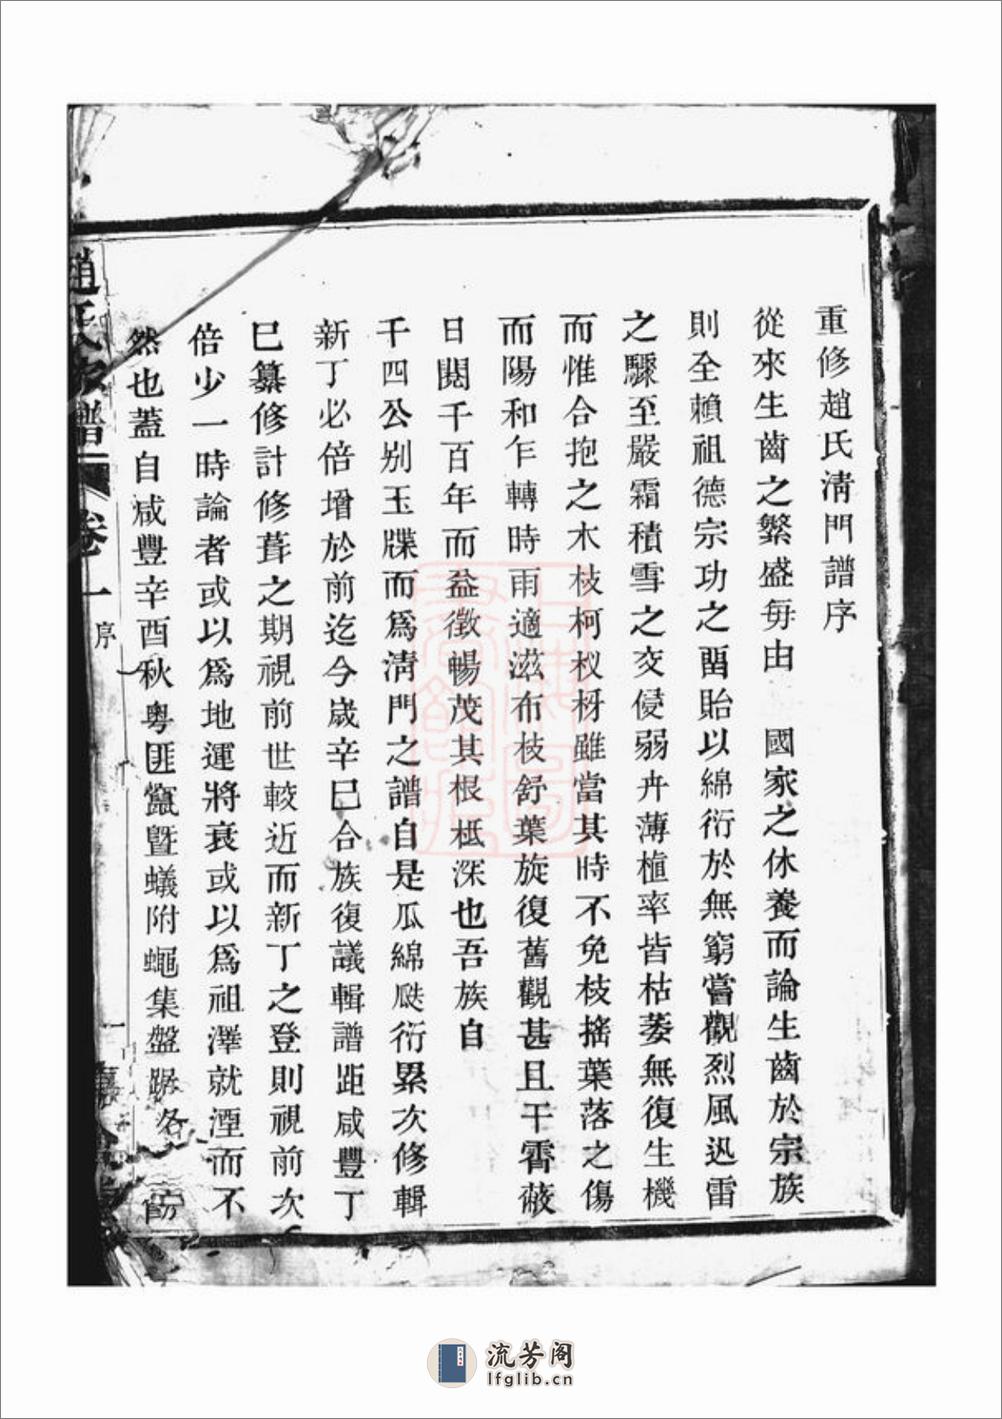 重修趙氏淸門譜序
從來生齒之繁盛毎由　國家之休養而論生齒於宗族
則全賴祖德宗功之畱貽以綿衍於無窮嘗觀烈風迅雷
之驟至嚴霜積雪之交侵弱卉薄植率皆枯萎無復生機
而惟合抱之木枝柯杈枒雖當其時不免枝搖葉落之傷
而陽和乍轉時雨適滋布枝舒葉旋復舊觀甚且干霄蔽
日閱千百年而益徵暢茂其根柢深也吾族自
千四公别玉牒而爲淸門之譜自是瓜綿瓞衍累次修輯
新丁必倍增於前迄今歲辛巳合族復議輯譜距咸豐丁
巳纂修計修葺之期視前世較近而新丁之登則視前次
倍少一時論者或以爲地運將衰或以爲祖澤就湮而不
然也蓋自咸豐辛酉秋粵匪竄曁蟻附蠅集盤踞各
趙氏家譜
卷一
序
一
上海圖書館藏
流芳阁
lfglib.cn